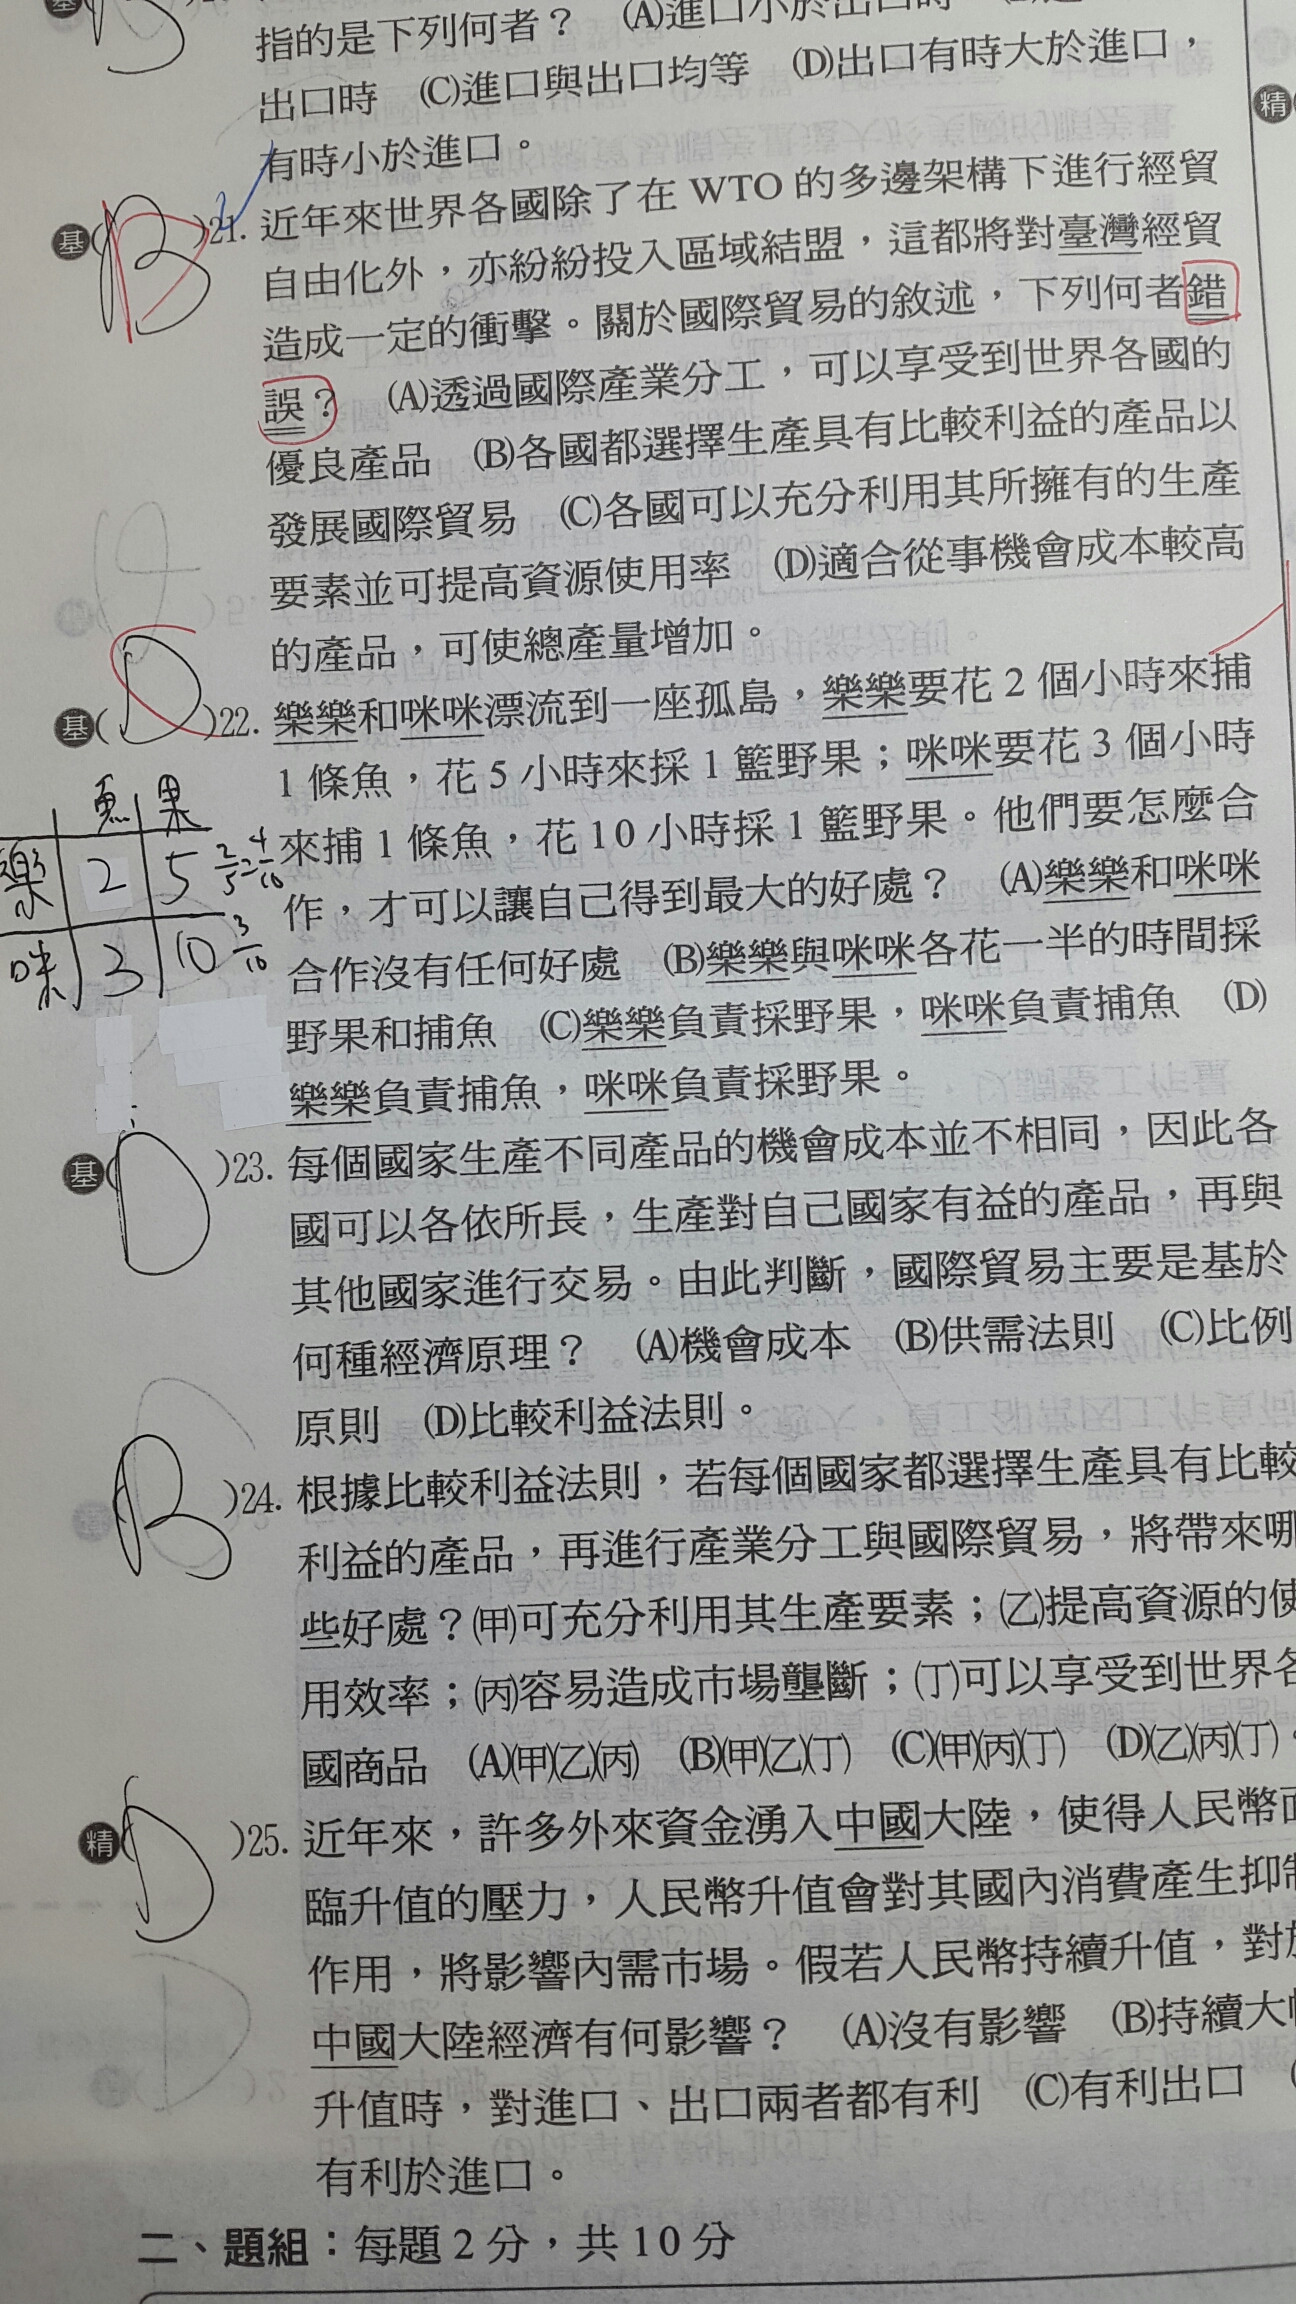 指的是下列何者？ (A)進口小於出口時
出口時 (C)進口與出口均等 (D)出口有時大於進口，
有時小於進口。
基(B)21. 近年來世界各國除了在 WTO 的多邊架構下進行經貿
自由化外，亦紛紛投入區域結盟，這都將對臺灣經貿
造成一定的衝擊。關於國際貿易的敘述，下列何者錯
誤？ (A)透過國際產業分工，可以享受到世界各國的
優良產品 (B)各國都選擇生產具有比較利益的產品以
發展國際貿易 (C)各國可以充分利用其所擁有的生產
要素並可提高資源使用率 (D)適合從事機會成本較高
的產品，可使總產量增加。
基(D)22. 樂樂和咪咪漂流到一座孤島，樂樂要花 2 個小時來捕
1 條魚，花 5 小時來採 1 籃野果；咪咪要花 3 個小時
來捕 1 條魚，花 10 小時採 1 籃野果。他們要怎麼合
作，才可以讓自己得到最大的好處？ (A)樂樂和咪咪
合作沒有任何好處 (B)樂樂與咪咪各花一半的時間採
野果和捕魚 (C)樂樂負責採野果，咪咪負責捕魚 (D)
樂樂負責捕魚，咪咪負責採野果。
魚 果
樂 2 5 2/5=4/10
咪 3 10 3/10
基(D)23. 每個國家生產不同產品的機會成本並不相同，因此各
國可以各依所長，生產對自己國家有益的產品，再與
其他國家進行交易。由此判斷，國際貿易主要是基於
何種經濟原理？ (A)機會成本 (B)供需法則 (C)比例
原則 (D)比較利益法則。
(B)24. 根據比較利益法則，若每個國家都選擇生產具有比較
利益的產品，再進行產業分工與國際貿易，將帶來哪
些好處？(甲)可充分利用其生產要素；(乙)提高資源的使
用效率；(丙)容易造成市場壟斷；(丁)可以享受到世界各
國商品 (A)(甲)(乙)(丙) (B)(甲)(乙)(丁) (C)(甲)(丙)(丁) (D)(乙)(丙)(丁)。
精(D)25. 近年來，許多外來資金湧入中國大陸，使得人民幣面
臨升值的壓力，人民幣升值會對其國內消費產生抑制
作用，將影響內需市場。假若人民幣持續升值，對於
中國大陸經濟有何影響？ (A)沒有影響 (B)持續大
升值時，對進口、出口兩者都有利 (C)有利出口
有利於進口。
二、題組：每題 2 分，共 10 分
精